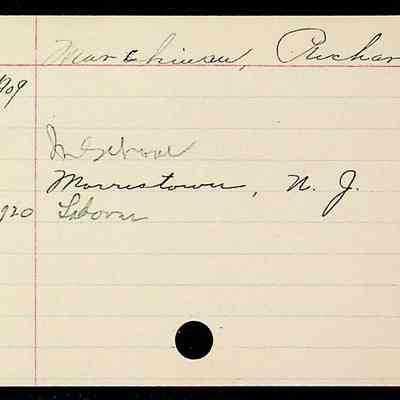 Richar
909
In School
Morristown, N. J.
920 Laborer